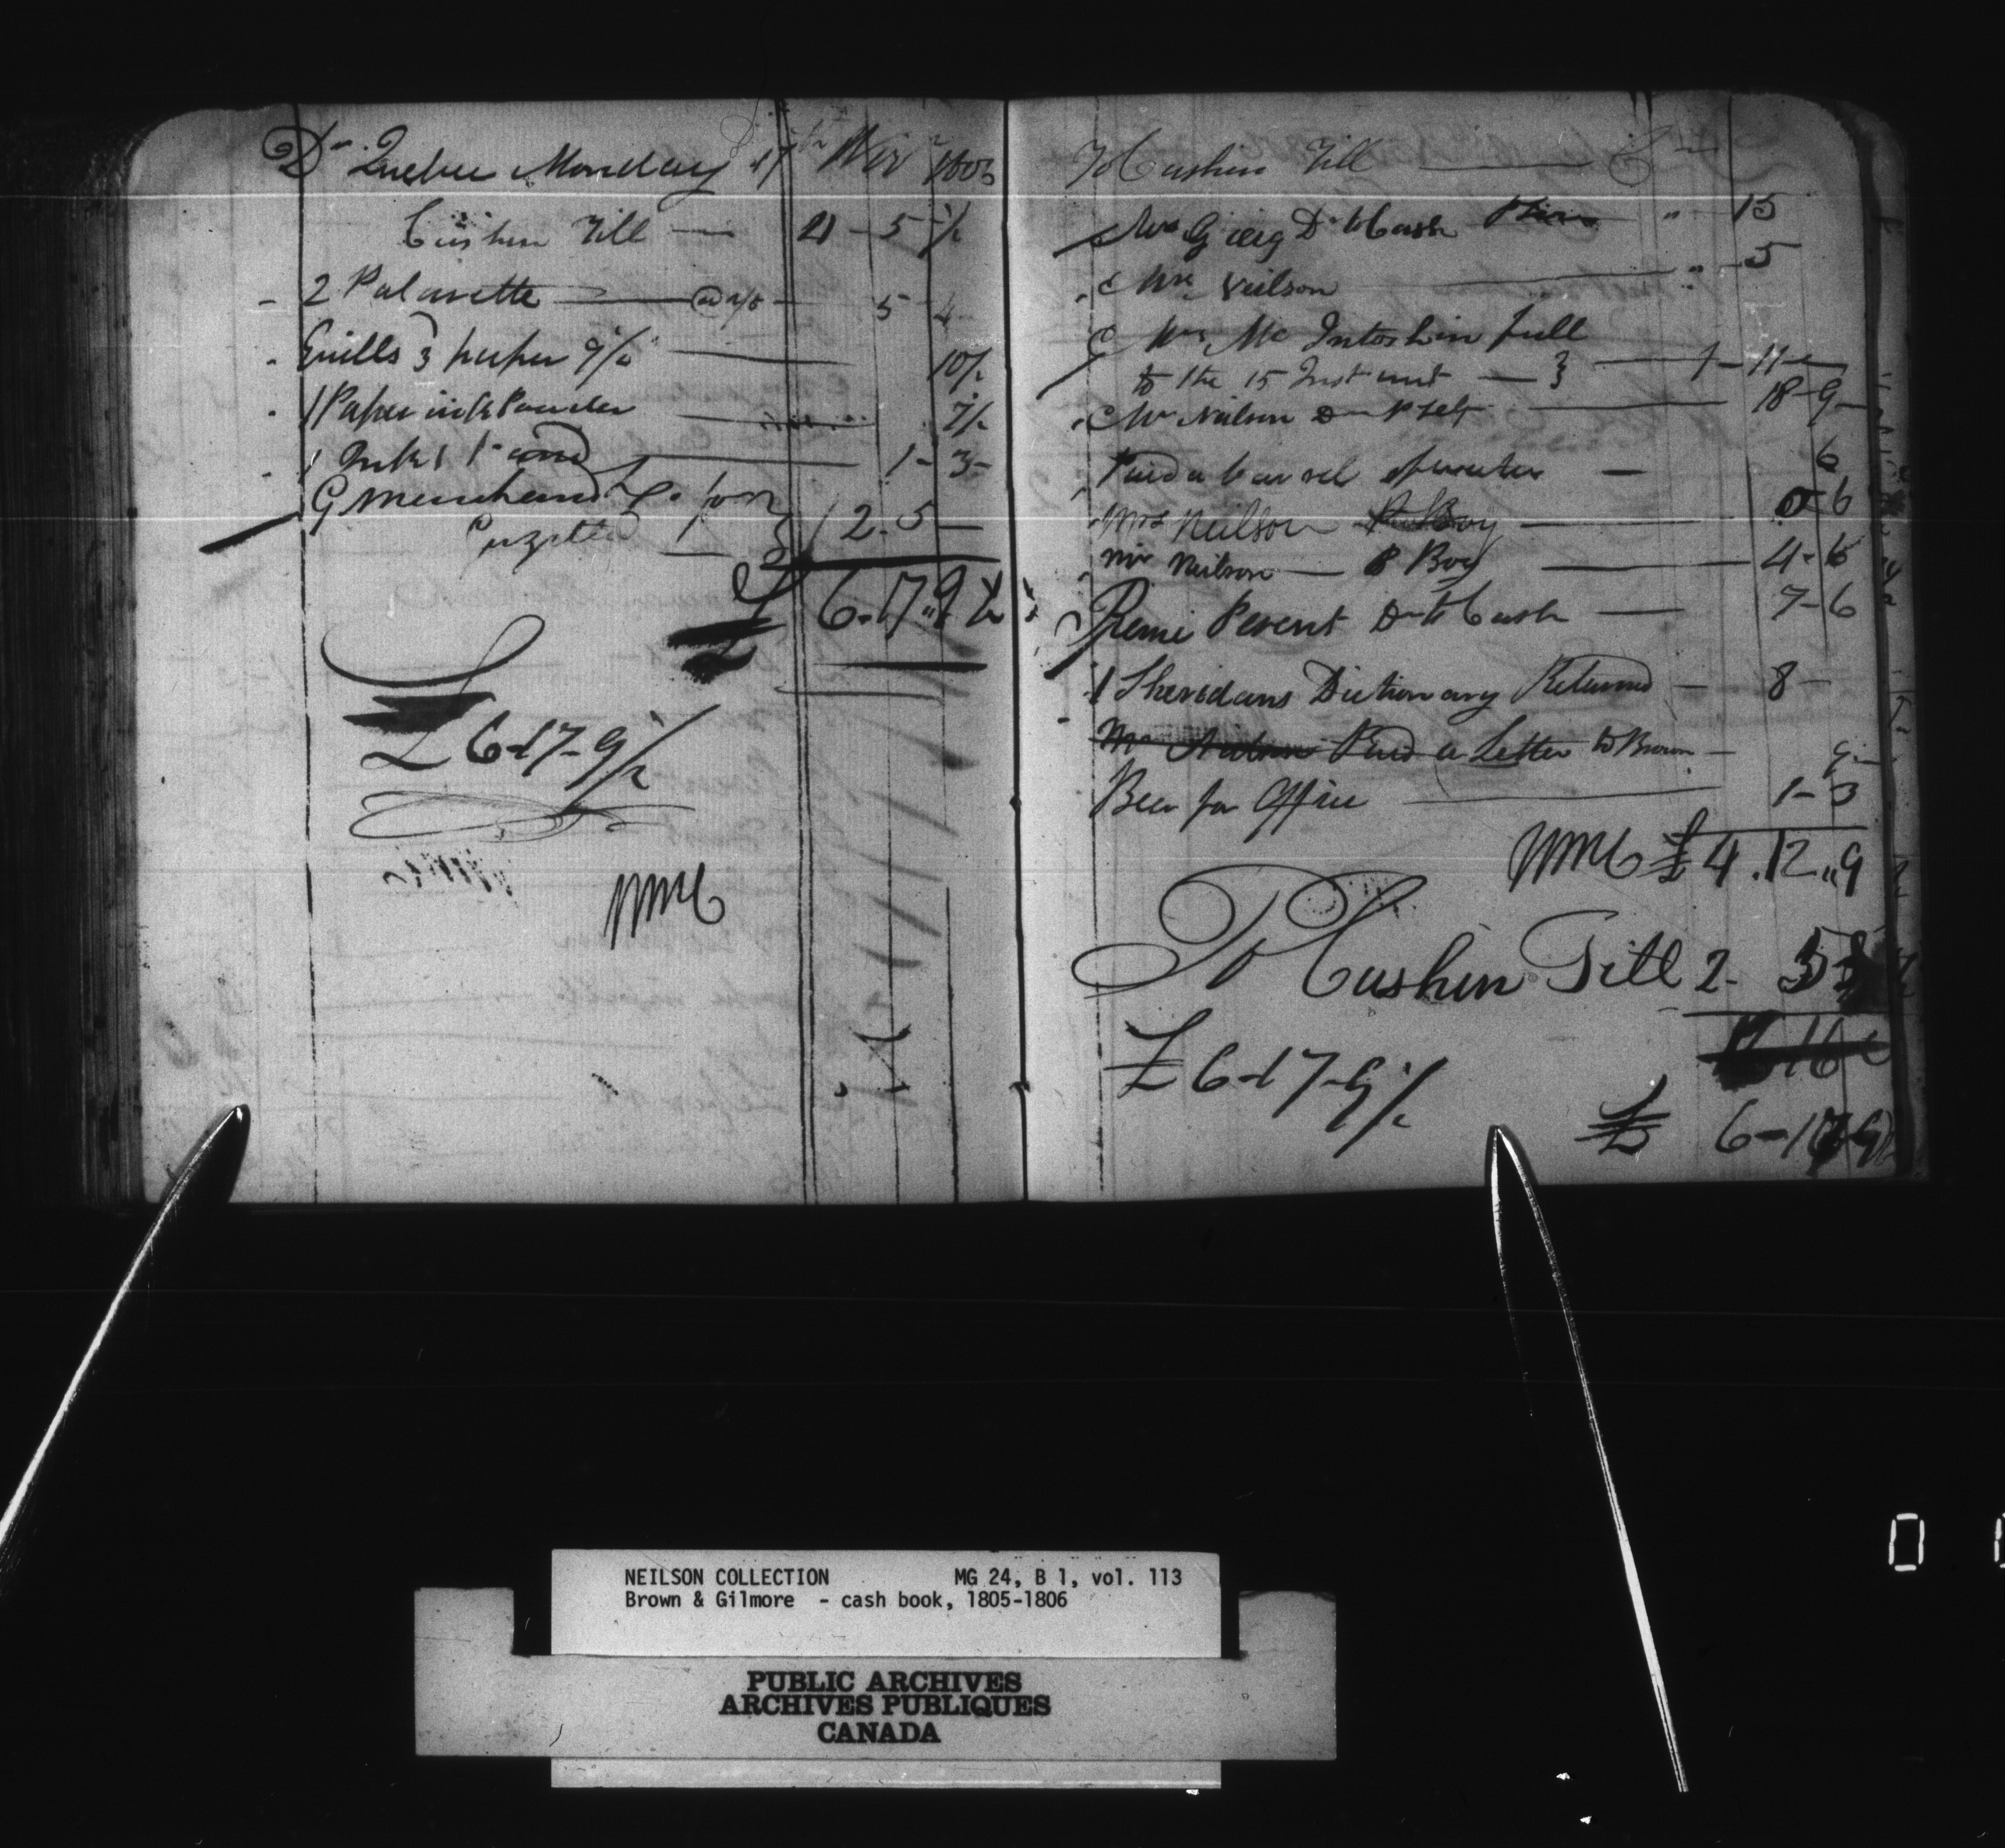 Dr Quebec Monday 17th 180
Cash in Till — 4 - 5 ½
2 Palavette — @ 2/8 — 5 - 4
Quills 3 paper 9½ — 10½
1 Paper ink Powder — 7½
1 Ink — 1 - 3 -
G Merchand for
Gazette — 2 - 5 —
£ 6 - 17 " 9 ½
£ 6-17-9½
WMC
To Cash in Till — Cr
Mrs Greig Dr to Cash " 15
Mr Neilson — " 5
Mr Mc Intosh in full
to the 15 Instant — 1 - 11 -
Mr Neilson Dr P Self — 18 - 9 -
Paid a barrel of water — 6
Mrs Neilson P Boy — 6
Mr Neilson — P Boy — 4 - 6
Remi Perent Dr to Cash — 7 - 6
1 Sheridans Dictionary Returned — 8 -
Mr Neilson Paid a Letter to Brown — 9
Beer for Office — 1 - 3
WMC £ 4 . 12 " 9
To Cash in Till 2 - 5
£ 6-17-9½
£ 6-17-9½
NEILSON COLLECTION MG 24, B 1, vol. 113
Brown & Gilmore - cash book, 1805-1806
PUBLIC ARCHIVES
ARCHIVES PUBLIQUES
CANADA